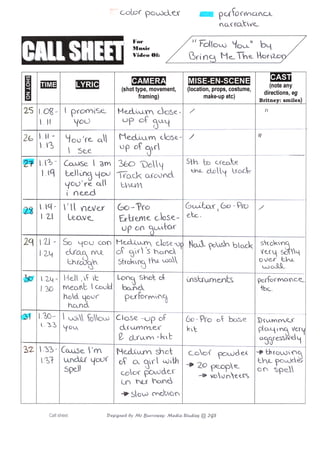 color powder
performance
narrative
CALL SHEET
For
Music
Video Of:
"Follow You" by
Bring Me The Horizon
SHOT NO
TIME
LYRIC
CAMERA
(shot type, movement,
framing)
MISE-EN-SCENE
(location, props, costume,
make-up etc)
CAST
(note any
directions, eg
Britney: smiles)
25
1.08-
1.11
I promise
you
Medium close-
up of guy
/
"
26
1.11-
1.13
You're all
I see
Medium close-
up of girl
/
"
27
1.13-
1.19
Cause I am
telling you
you're all
i need
360 Dolly
Track around
them
Sth to create
the dolly track
28
1.19-
1.21
I'll never
leave
Go-Pro
Extreme close-
up on guitar
Guitar, Go-Pro
etc.
29
1.21-
1.24
So you can
drag me
through
Medium close-up
of girl's hand
Stroking the wall
Nail polish black
stroking
very softly
over the
wall
30
1.24-
1.30
Hell, if it
meant I could
hold your
hand
Long shot of
band
performing
instruments
performance
31
1.30-
1.33
I will follow
you
Close-up of
drummer
& drum-kit
Go-Pro of base
kit
Drummer
playing very
aggressively
32
1.33-
1.37
Cause I'm
under your
spell
Medium shot
of a girl with
color powder
in her hand
→ slow motion
color powder
→ 20 people
→ volunteers
→ throwing
the powder
on spell
Call sheet